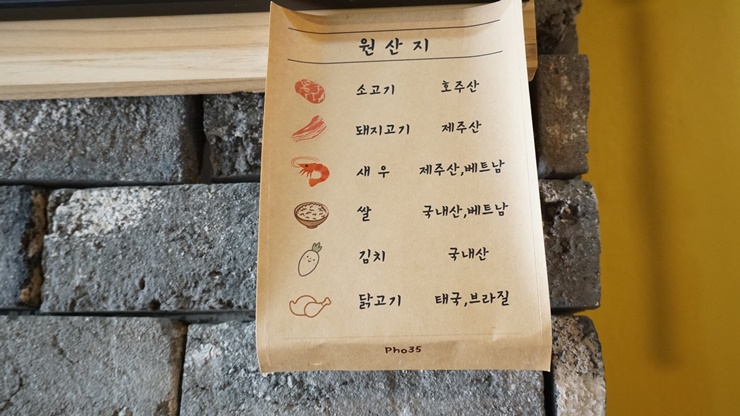 원산지
소고기 호주산
돼지고기 제주산
새우 제주산,베트남
쌀 국내산,베트남
김치 국내산
닭고기 태국,브라질
Pho35